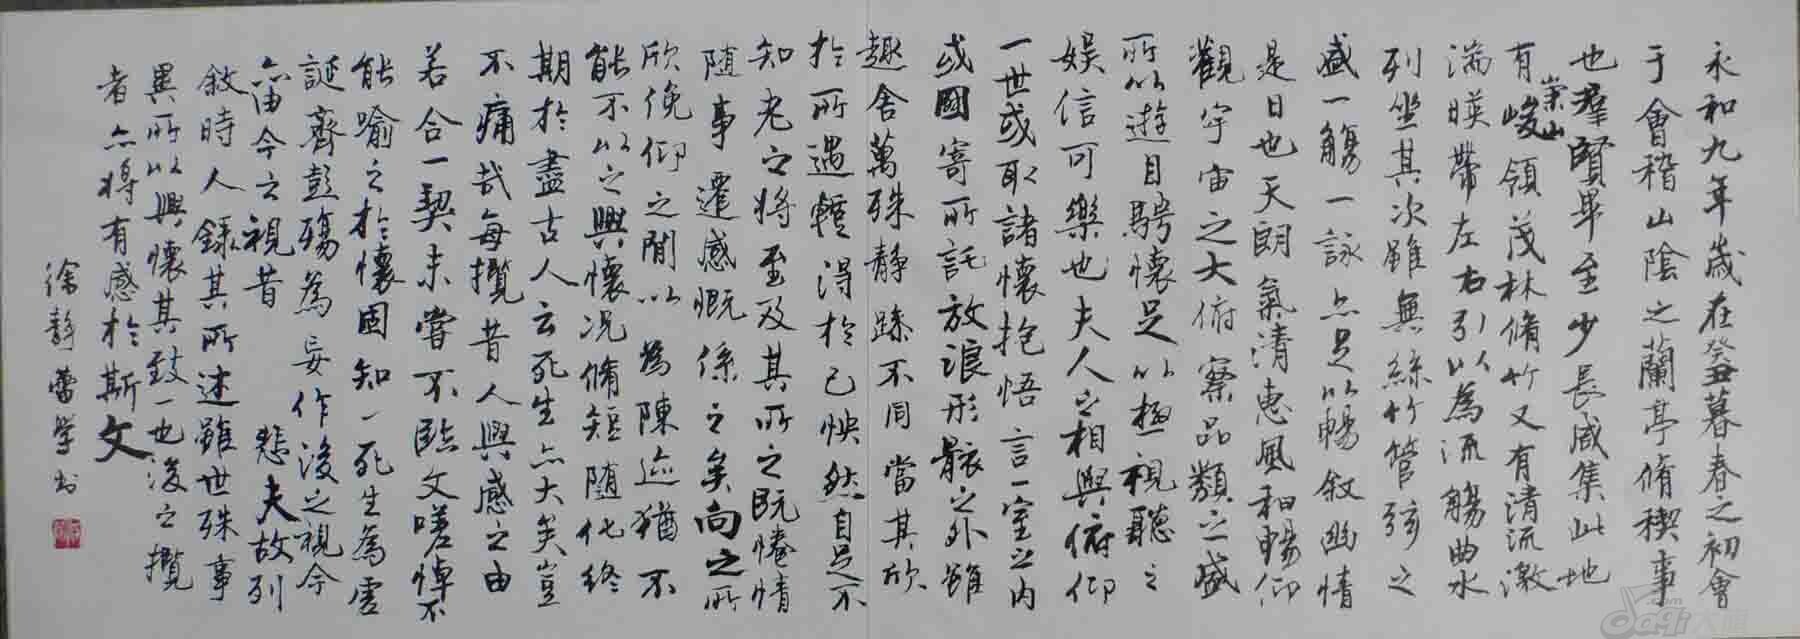 永和九年歲在癸丑暮春之初會
于會稽山陰之蘭亭脩稧事
也羣賢畢至少長咸集此地
有崇山峻領茂林脩竹又有清流激
湍暎帶左右引以為流觴曲水
列坐其次雖無絲竹管弦之
盛一觴一詠亦足以暢敘幽情
是日也天朗氣清惠風和暢仰
觀宇宙之大俯察品類之盛
所以遊目騁懷足以極視聽之
娛信可樂也夫人之相與俯仰
一世或取諸懷抱悟言一室之內
或因寄所託放浪形骸之外雖
趣舍萬殊靜躁不同當其欣
於所遇蹔得於己怏然自足不
知老之將至及其所之既惓情
隨事遷感慨係之矣向之所
欣俛仰之閒以為陳迹猶不
能不以之興懷況脩短隨化終
期於盡古人云死生亦大矣豈
不痛哉每攬昔人興感之由
若合一契未嘗不臨文嗟悼不
能喻之於懷固知一死生為虛
誕齊彭殤為妄作後之視今
亦由今之視昔 悲夫故列
敘時人錄其所述雖世殊事
異所以興懷其致一也後之攬
者亦將有感於斯文
徐靜蕾學书